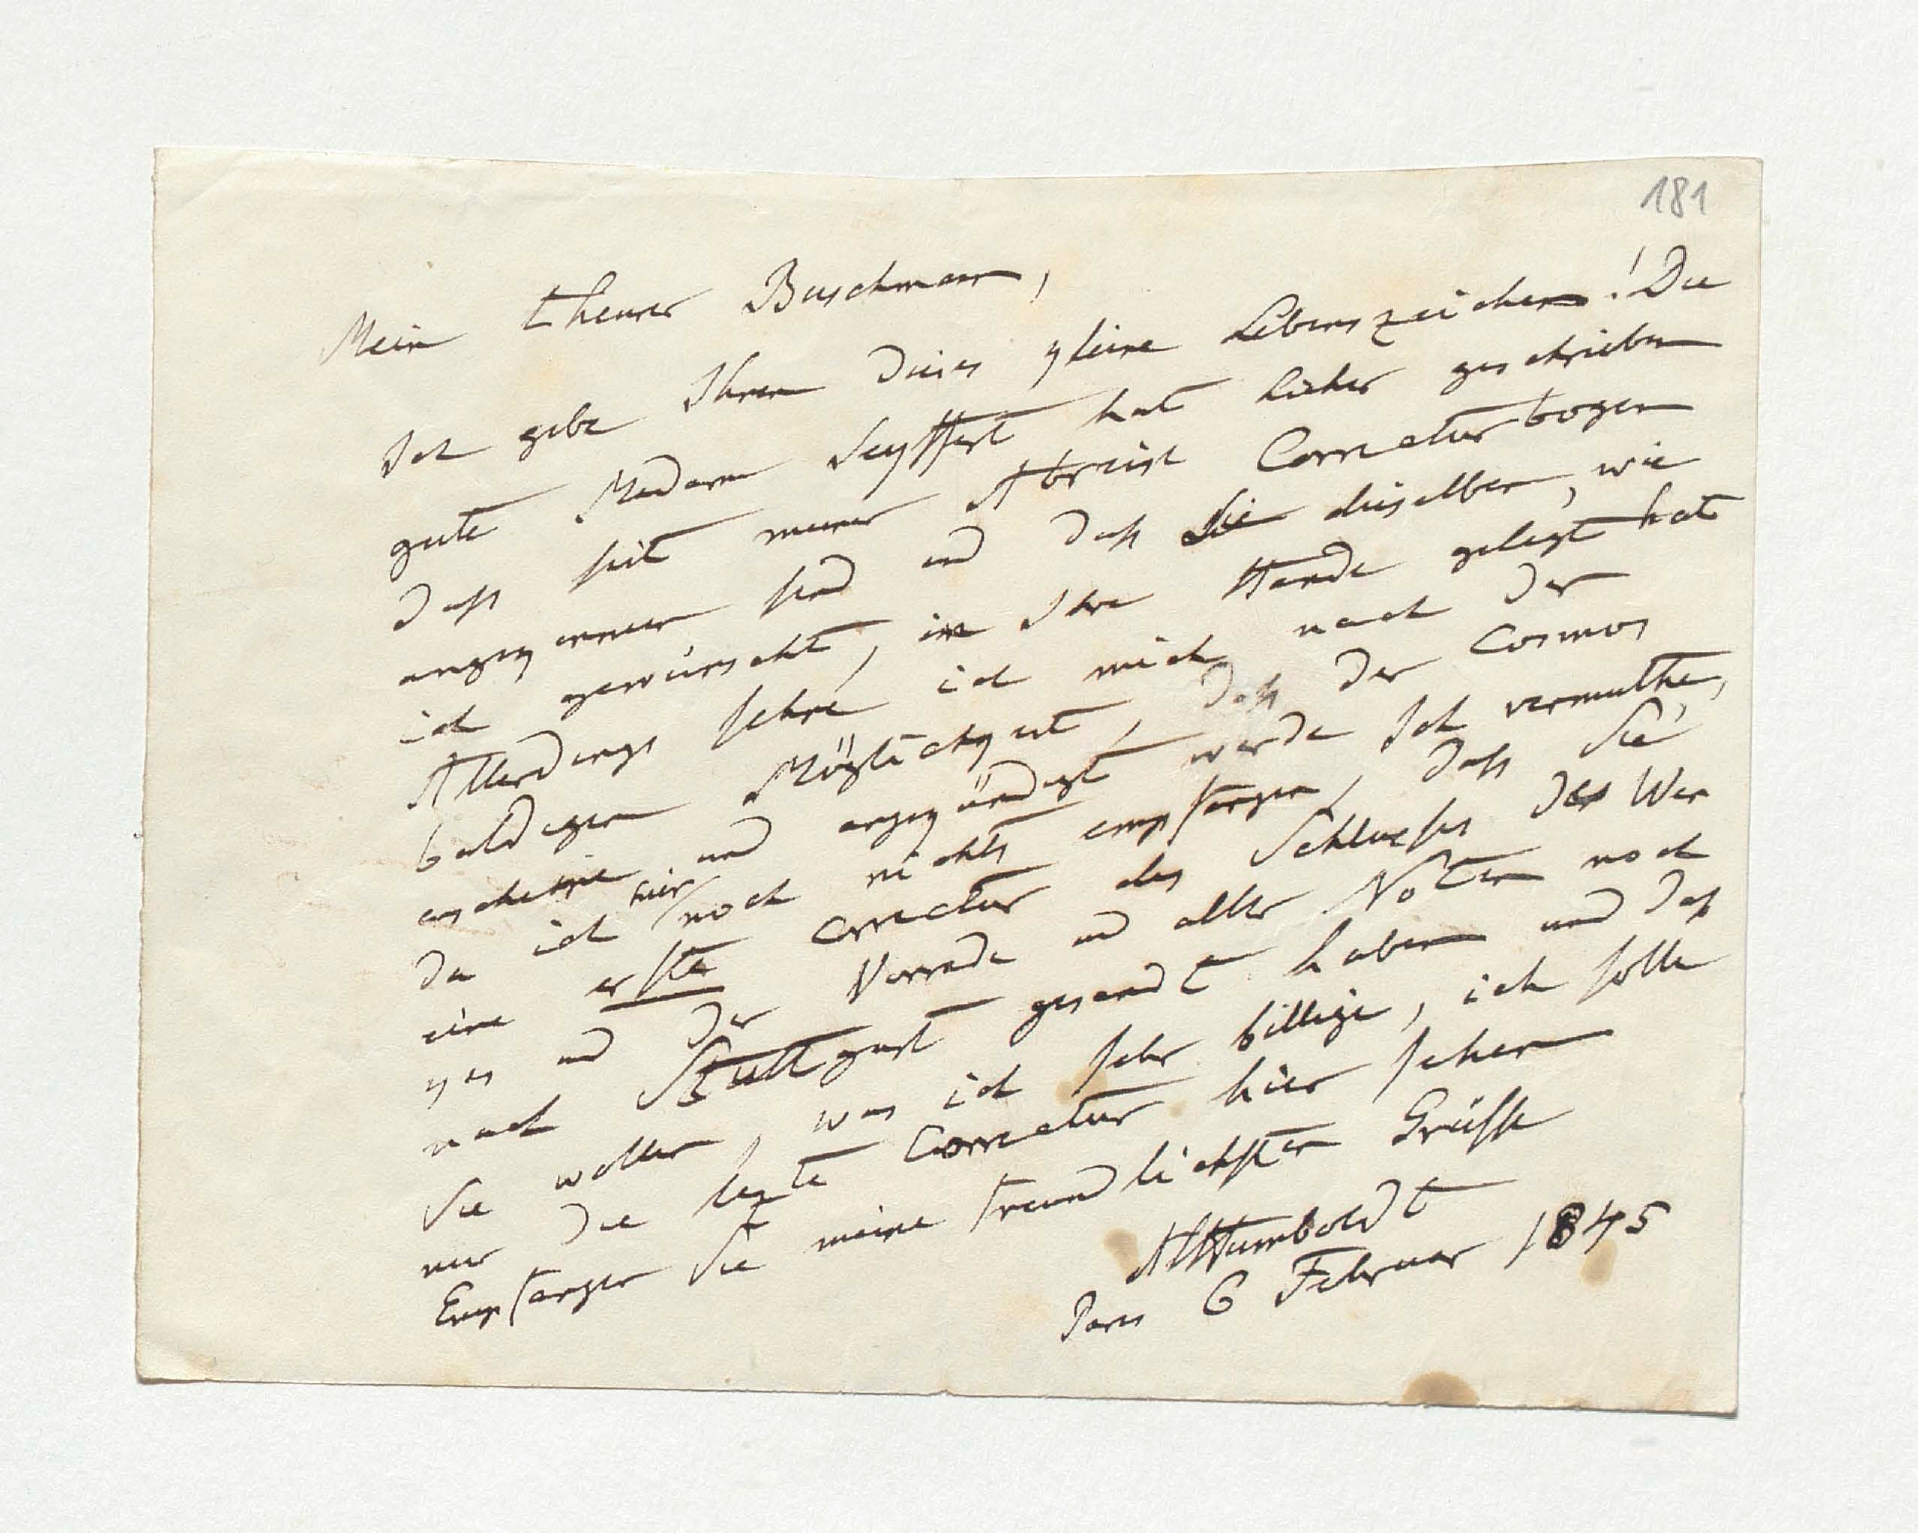 181
Mein theurer Buschmann,
Ich gebe Ihnen dieses kleine Lebenszeichen! Die
gute Madame Seyffert hat hieher geschrieben
daß seit meiner Abreise Correcturbogen
angekommen sind und daß Sie dieselben, wie
ich gewünscht, in Ihre Hände gelegt hat
Allerdings sehne ich mich nach der
baldigen Möglichkeit, daß der Cosmos
erscheine und angekündigt werde Ich vermuthe,
da ich hier noch nichts empfangen, daß Sie
eine erste Correctur des Schlusses des Wer
kes und der Vorrede und aller Noten noch
nach Stuttgart gesandt haben und daß
Sie wollen, was ich sehr billige, ich solle
nur die lezte Correctur hier sehen
Empfangen Sie meine freundlichsten Grüsse
AlHumboldt
Paris 6 Februar 1845